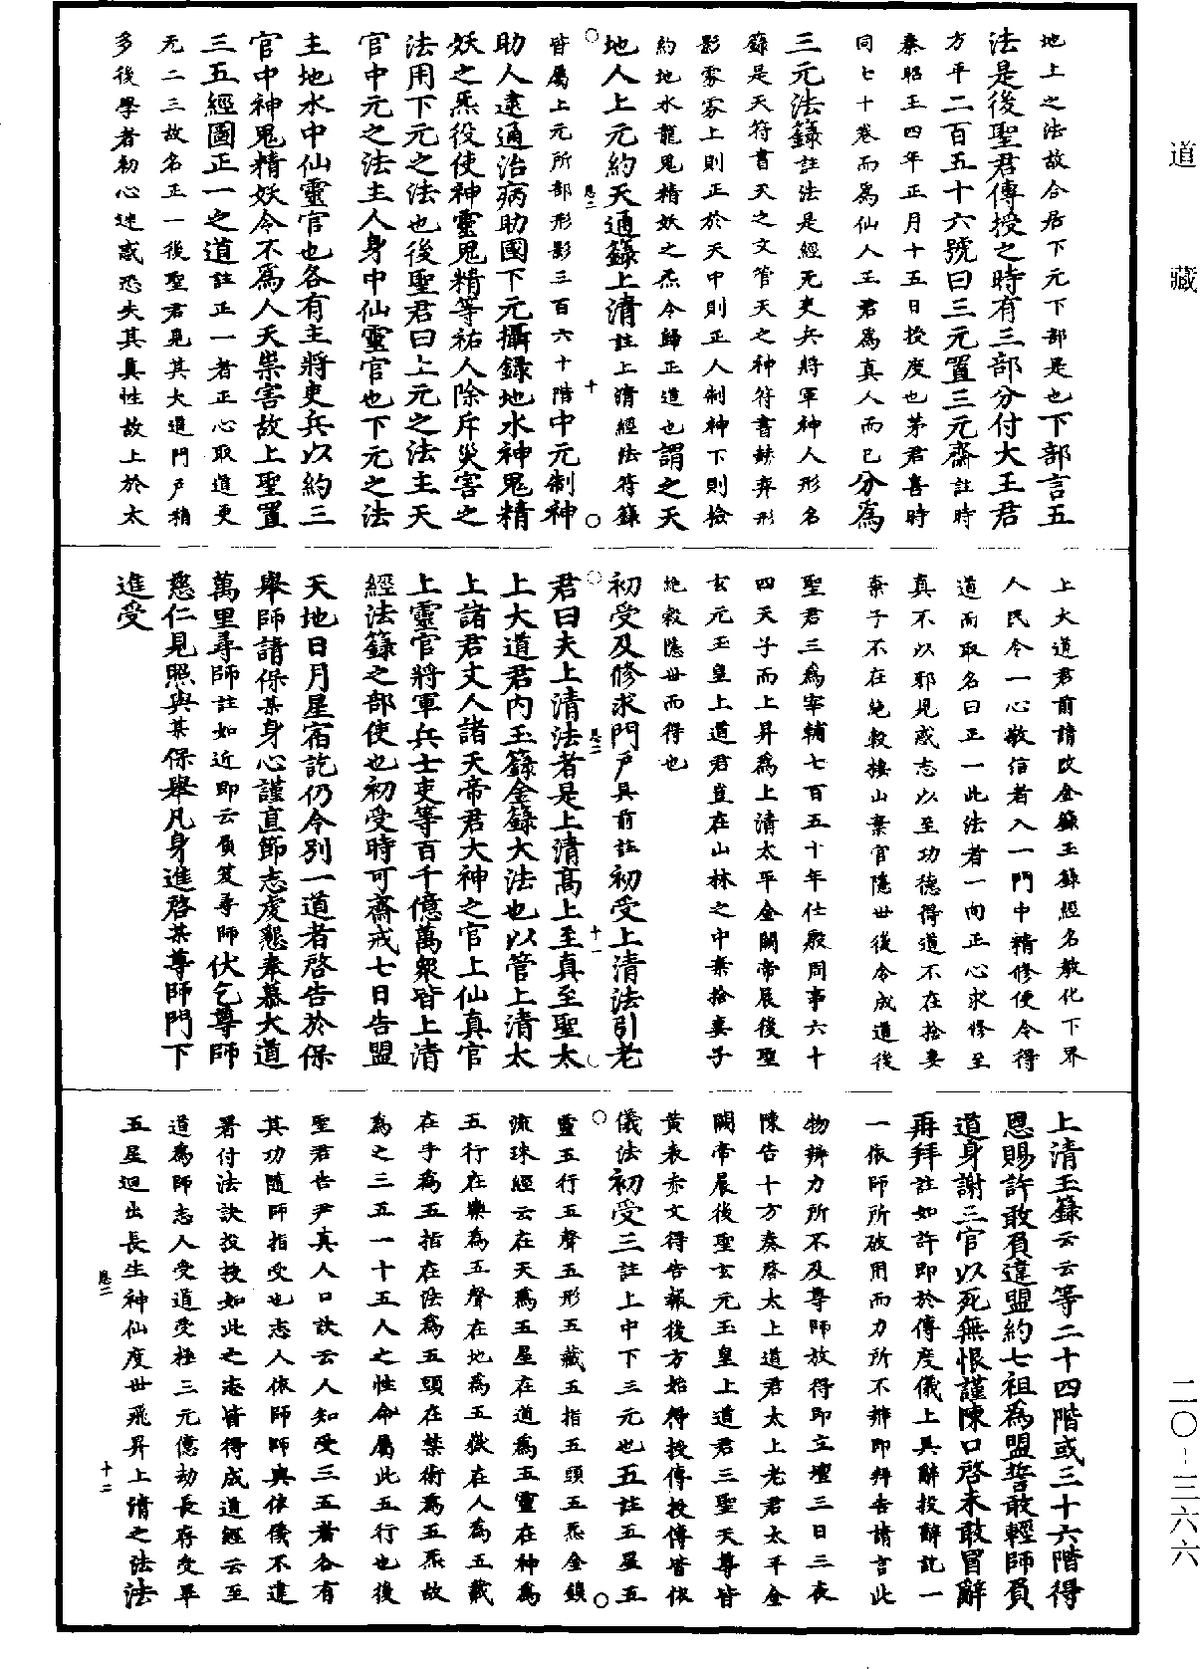 道藏
二〇-三六六
地上之法故合居下元下部是也下部言五
法是後聖君傳授之時有三部分付大王君
方平二百五十六號曰三元置三元齋註時
秦昭王四年正月十五日授度也茅君喜時
同七十卷而為仙人王君為真人而已分為
三元法籙註法是經无吏兵將軍神人形名
籙是天符書天之文管天之神符書赫弈形
影雰雰上則正於天中則正人制神下則檢
約地水龍鬼精妖之炁令歸正道也謂之天
地人上元約天通籙上清註上清經法符籙
皆屬上元所部形影三百六十階中元制神
助人逮通治病助國下元攝録地水神鬼精
妖之炁役使神靈鬼精等祐人除斥災害之
法用下元之法也後聖君曰上元之法主天
官中元之法主人身中仙靈官也下元之法
主地水中仙靈官也各有主將吏兵以約三
官中神鬼精妖令不為人天祟害故上聖置
三五經圖正一之道註正一者正心取道更
无二三故名正一後聖君見其大道門戶稍
多後學者初心迷惑恐失其真性故上於太
上大道君前請改金籙玉籙經名教化下界
人民令一心敬信者入一門中精修便令得
道而取名曰正一此法者一向正心求修至
真不以邪見惑志以至功德得道不在捨妻
棄子不在絶穀棲山棄官隱世後令成道後
聖君三為宰輔七百五十年仕殷周事六十
四天子而上昇為上清太平金闕帝晨後聖
玄元玉皇上道君豈在山林之中棄捨妻子
絶穀隱世而得也
初受及修求門戶具前註初受上清法引老
君曰夫上清法者是上清高上至真至聖太
上大道君内玉籙金籙大法也以管上清太
上諸君丈人諸天帝君大神之官上仙真官
上靈官將軍兵士吏等百千億萬衆皆上清
經法籙之部使也初受時可齋戒七日告盟
天地日月星宿訖仍令別一道者啓告於保
舉師請保某身心謹直節志虔懇奉慕大道
萬里尋師註如近即云負笈尋師伏乞尊師
慈仁見照與某保舉凡身進啓某尊師門下
進受
上清玉籙云云等二十四階或三十六階得
恩賜許敢負違盟約七祖為盟誓敢輕師負
道身謝三官以死無恨謹陳口啓未敢冒辭
再拜註如許即於傳度儀上具辭投辭訖一
一依師所破用而力所不辨即拜告請言此
物辨力所不及尊師放得即立壇三日三夜
陳告十方奏啓太上道君太上老君太平金
闕帝晨後聖玄元玉皇上道君三聖天尊皆
黄表赤文得告報後方始得授傳授傳皆依
儀法初受三註上中下三元也五註五星五
靈五行五聲五形五藏五指五頭五炁金鎖
流珠經云在天為五星在道為五靈在神為
五行在樂為五聲在地為五嶽在人為五藏
在手為五指在陰為五頭在禁術為五炁故
為之三五一十五人之性命屬此五行也後
聖君告尹真人口訣云人知受三五者各有
其功隨師指受也志人依師師與依儀不違
署付法訣投授如此之志皆得成道經云至
道為師志人受道受極三元億劫長存受畢
五星迴出長生神仙度世飛昇上清之法法